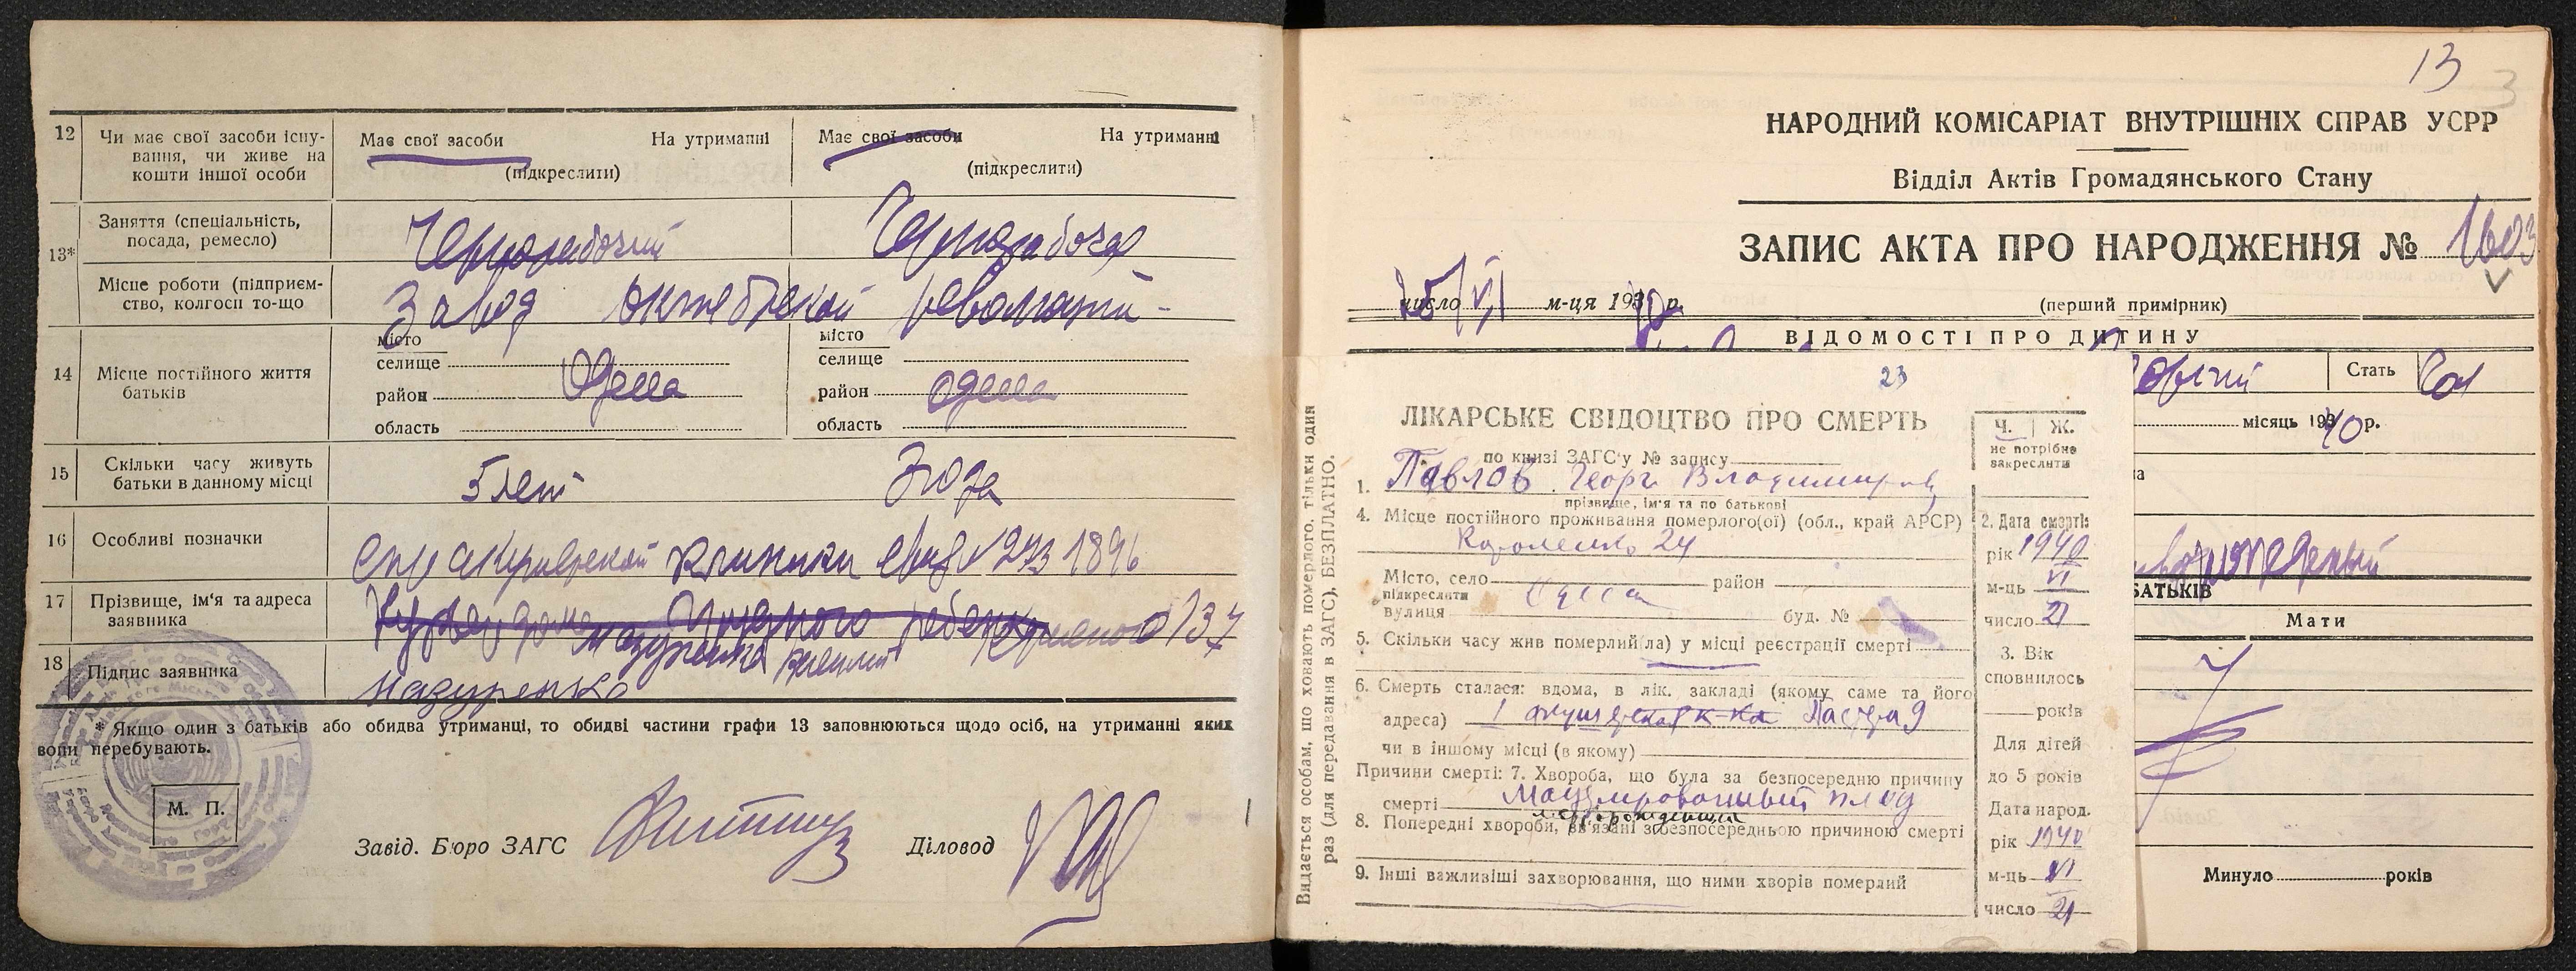 12 Чи має свої засоби існу-
вання, чи живе на
кошти іншої особи
Має свої засоби На утриманні
(підкреслити)
Має свої засоби На утриманні
(підкреслити)
13*
Заняття (спеціальність,
посада, ремесло)
Чернорабочий
Чернорабочая
Місце роботи (підприєм-
ство, колгосп то-що
Завод Октябрьской Революции
14 Місце постійного життя
батьків
місто
селище
район Одесса
область
місто
селище
район Одесса
область
15 Скільки часу живуть
батьки в данному місці
5 лет
3 года
16 Особливі позначки
клиники 273 1896
17 Прізвище, ім'я та адреса
заявника
Мазуренко 137
18 Підпис заявника
Мазуренко
* Якщо один з батьків або обидва утриманці, то обидві частини графи 13 заповнюються щодо осіб, на утриманні яких
вони перебувають.
М. П.
Завід. Бюро ЗАГС
Діловод
13
3
НАРОДНИЙ КОМІСАРІАТ ВНУТРІШНІХ СПРАВ УСРР
Відділ Актів Громадянського Стану
ЗАПИС АКТА ПРО НАРОДЖЕННЯ № 1603
число м-ця 193 р.
(перший примірник)
ВІДОМОСТІ ПРО ДИТИНУ
Стать
місяць 1940 р.
БАТЬКІВ
Мати
Минуло років
23
ЛІКАРСЬКЕ СВІДОЦТВО ПРО СМЕРТЬ
по книзі ЗАГС'у № запису
Ч. Ж.
не потрібне
закреслити
1. Павлов Георг Владимиров
прізвище, ім'я та по батькові
4. Місце постійного проживання померлого(ої) (обл., край АРСР)
Короленко 24
Місто, село район
підкреслити
Одесса
вулиця буд. №
5. Скільки часу жив померлий(ла) у місці реєстрації смерті
6. Смерть сталася: вдома, в лік. закладі (якому саме та його
адреса) I акушерская к-ка Пастера 9
чи в іншому місці (в якому)
Причини смерті: 7. Хвороба, що була за безпосередню причину
смерті Мацерированный плод
мертворожденный
8. Попередні хвороби, зв'язані з безпосередньою причиною смерті
9. Інші важливіші захворювання, що ними хворів померлий
2. Дата смерті:
рік 1940
м-ць VI
число 21
3. Вік
сповнилось
років
Для дітей
до 5 років
Дата народ.
рік 1940
м-ць VI
число 21
Видається особам, що ховають померлого, тільки один
раз (для передавання в ЗАГС), БЕЗПЛАТНО.